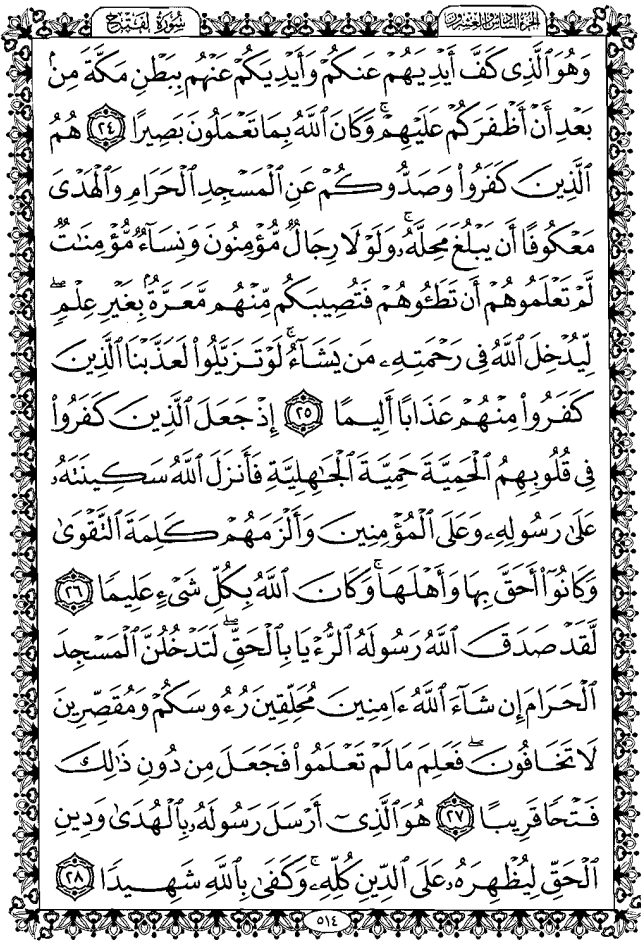 سُورَةُ الفَتْحِ
الجُزْءُ السَّادِسُ وَالعِشْرُونَ
وَهُوَ ٱلَّذِى كَفَّ أَيْدِيَهُمْ عَنكُمْ وَأَيْدِيَكُمْ عَنْهُم بِبَطْنِ مَكَّةَ مِنۢ
بَعْدِ أَنْ أَظْفَرَكُمْ عَلَيْهِمْ ۚ وَكَانَ ٱللَّهُ بِمَا تَعْمَلُونَ بَصِيرًا ٢٤ هُمُ
ٱلَّذِينَ كَفَرُوا۟ وَصَدُّوكُمْ عَنِ ٱلْمَسْجِدِ ٱلْحَرَامِ وَٱلْهَدْىَ
مَعْكُوفًا أَن يَبْلُغَ مَحِلَّهُۥ ۚ وَلَوْلَا رِجَالٌ مُّؤْمِنُونَ وَنِسَآءٌ مُّؤْمِنَٰتٌ
لَّمْ تَعْلَمُوهُمْ أَن تَطَـُٔوهُمْ فَتُصِيبَكُم مِّنْهُم مَّعَرَّةٌۢ بِغَيْرِ عِلْمٍ ۖ
لِّيُدْخِلَ ٱللَّهُ فِى رَحْمَتِهِۦ مَن يَشَآءُ ۚ لَوْ تَزَيَّلُوا۟ لَعَذَّبْنَا ٱلَّذِينَ
كَفَرُوا۟ مِنْهُمْ عَذَابًا أَلِيمًا ٢٥ إِذْ جَعَلَ ٱلَّذِينَ كَفَرُوا۟
فِى قُلُوبِهِمُ ٱلْحَمِيَّةَ حَمِيَّةَ ٱلْجَٰهِلِيَّةِ فَأَنزَلَ ٱللَّهُ سَكِينَتَهُۥ
عَلَىٰ رَسُولِهِۦ وَعَلَى ٱلْمُؤْمِنِينَ وَأَلْزَمَهُمْ كَلِمَةَ ٱلتَّقْوَىٰ
وَكَانُوٓا۟ أَحَقَّ بِهَا وَأَهْلَهَا ۚ وَكَانَ ٱللَّهُ بِكُلِّ شَىْءٍ عَلِيمًا ٢٦
لَّقَدْ صَدَقَ ٱللَّهُ رَسُولَهُ ٱلرُّءْيَا بِٱلْحَقِّ ۖ لَتَدْخُلُنَّ ٱلْمَسْجِدَ
ٱلْحَرَامَ إِن شَآءَ ٱللَّهُ ءَامِنِينَ مُحَلِّقِينَ رُءُوسَكُمْ وَمُقَصِّرِينَ
لَا تَخَافُونَ ۖ فَعَلِمَ مَا لَمْ تَعْلَمُوا۟ فَجَعَلَ مِن دُونِ ذَٰلِكَ
فَتْحًا قَرِيبًا ٢٧ هُوَ ٱلَّذِىٓ أَرْسَلَ رَسُولَهُۥ بِٱلْهُدَىٰ وَدِينِ
ٱلْحَقِّ لِيُظْهِرَهُۥ عَلَى ٱلدِّينِ كُلِّهِۦ ۚ وَكَفَىٰ بِٱللَّهِ شَهِيدًا ٢٨
٥١٤